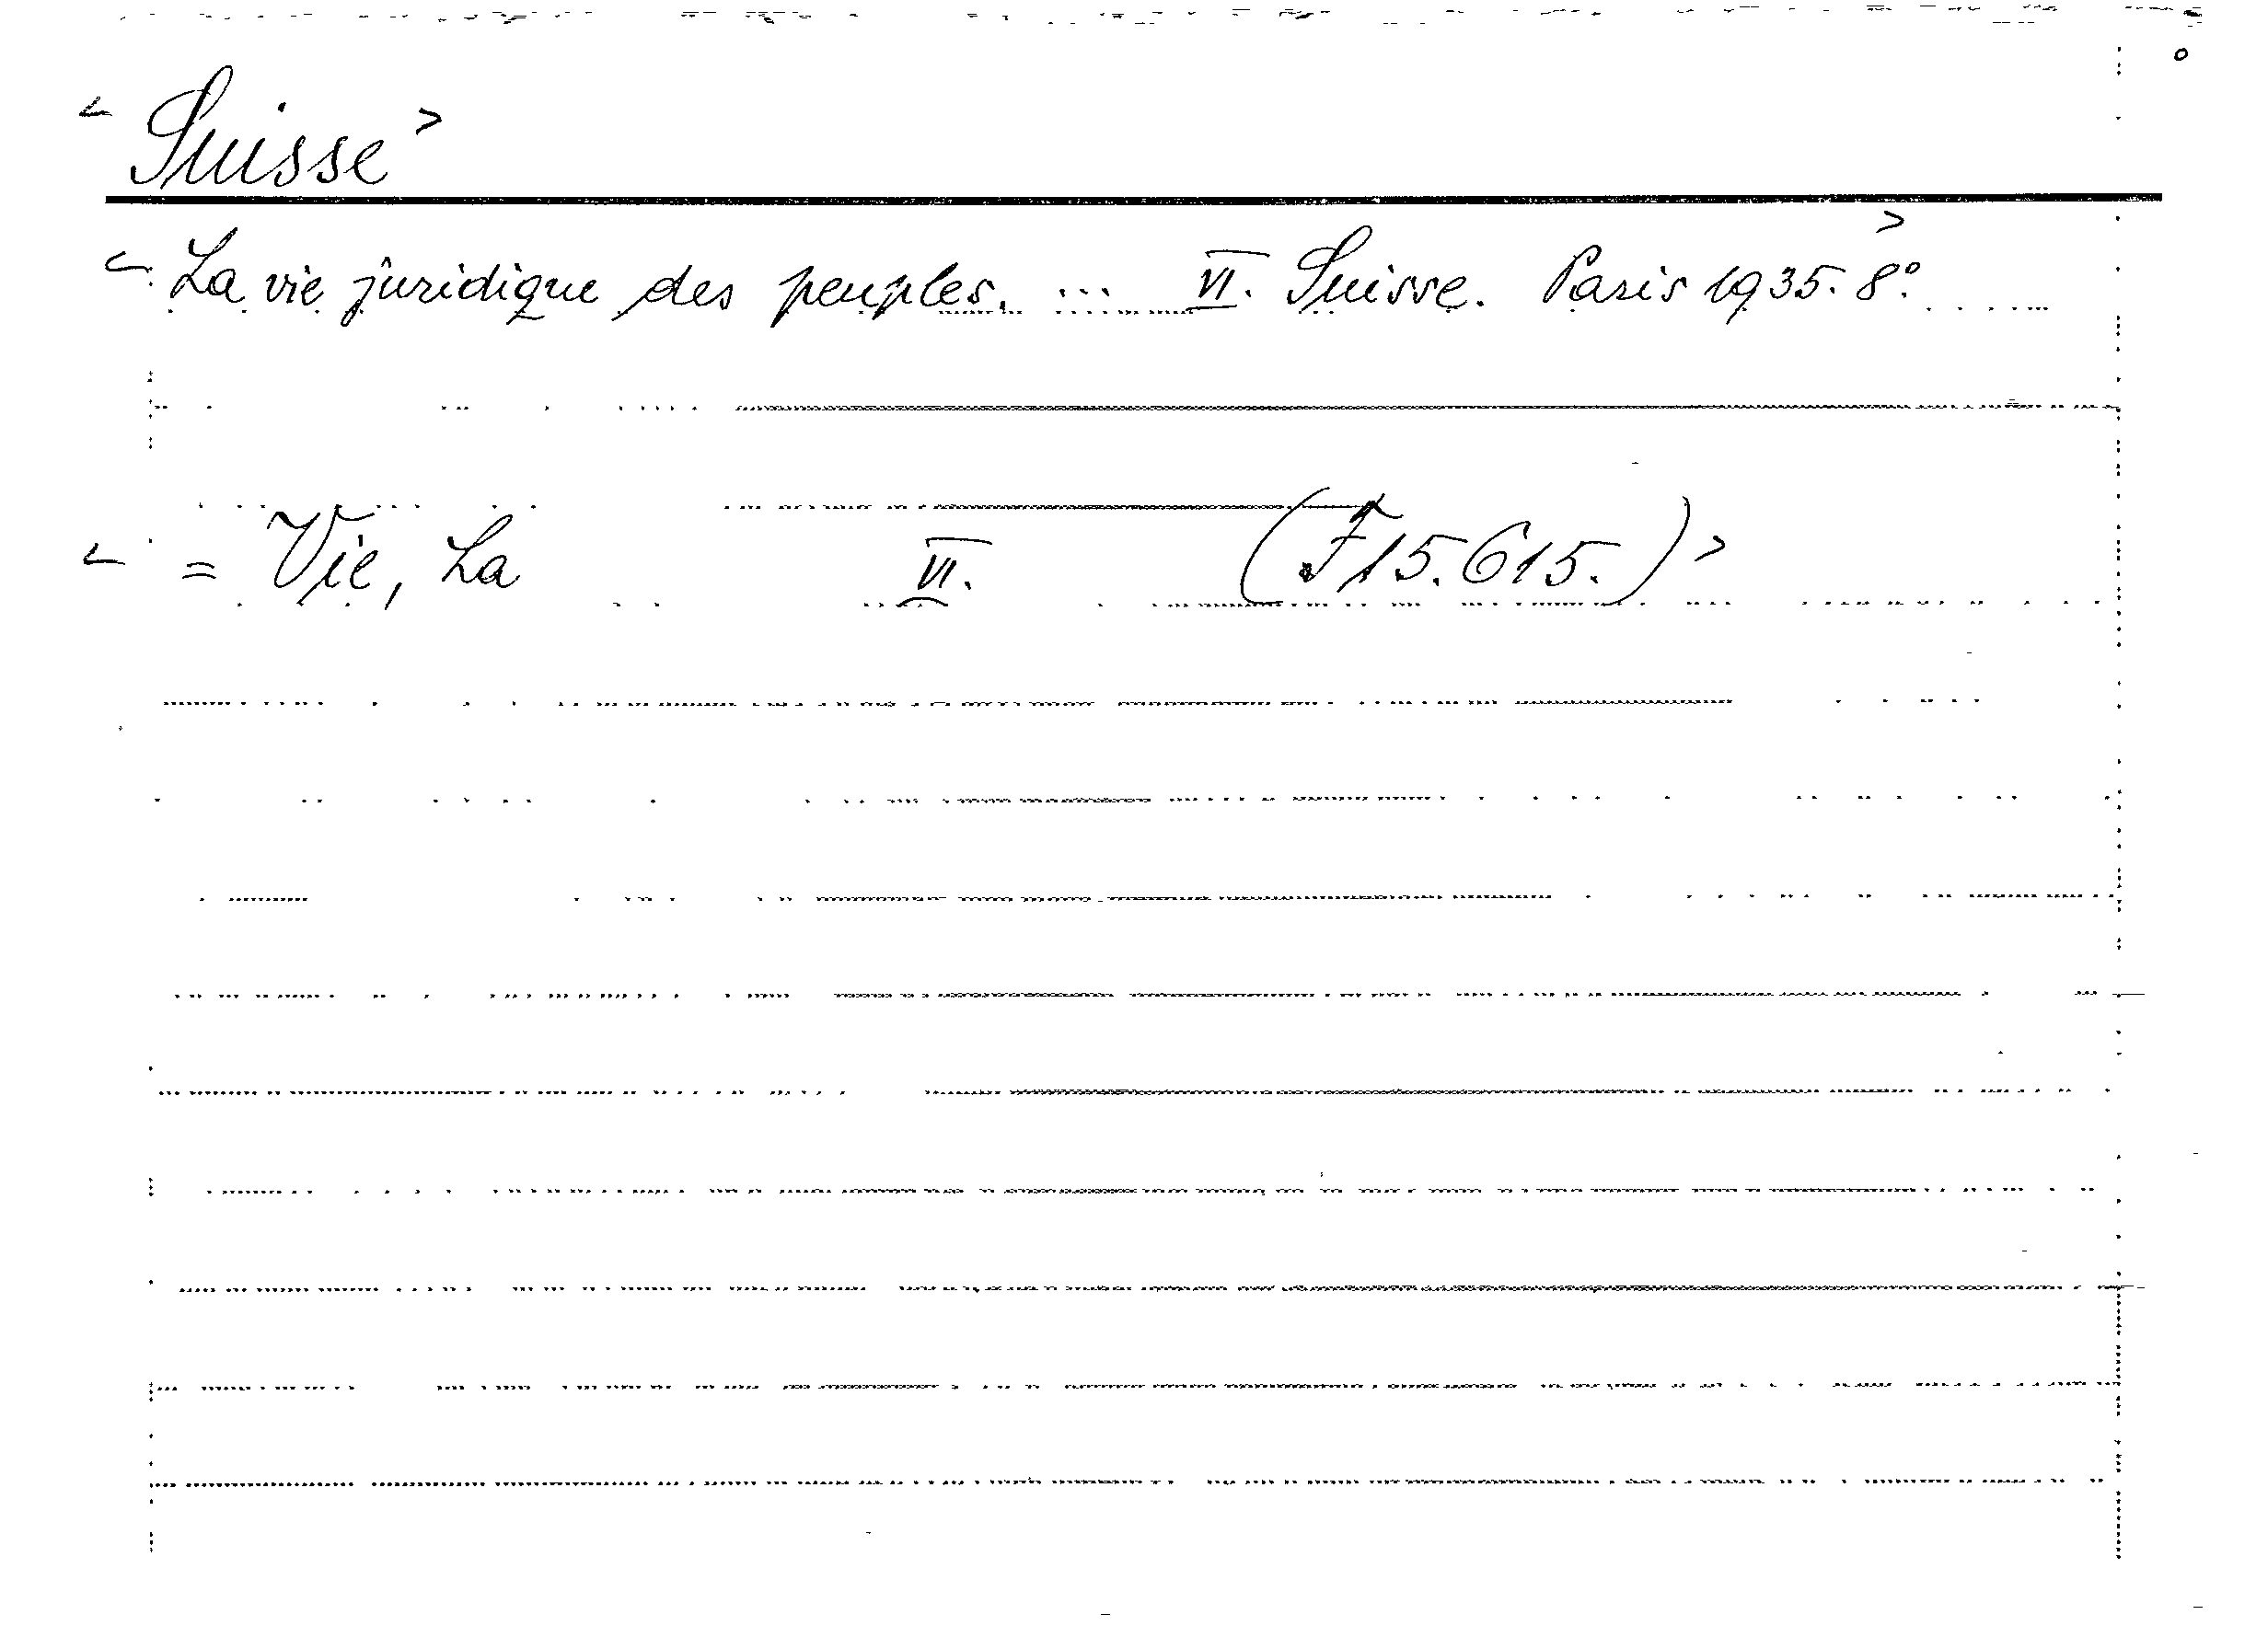 < Suisse >
< La vie juridique des peuples. ... VI. Suisse. Paris 1935. 8°. >
< = Vie, La VI. (F 15.615.) >